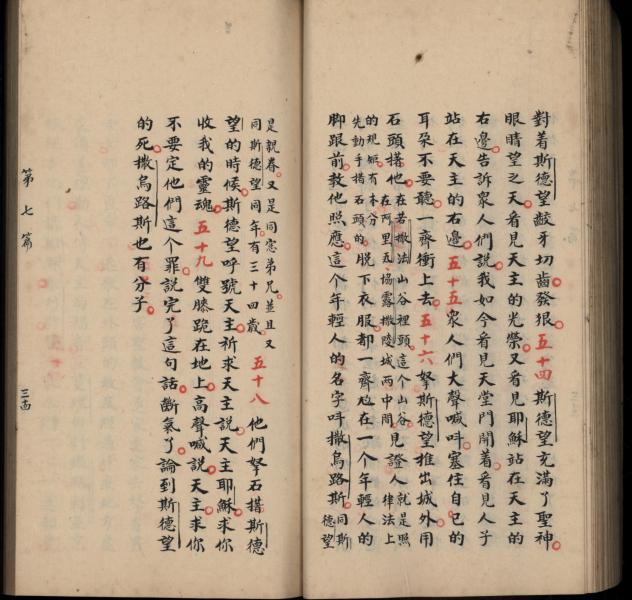 對着斯德望齩牙切齒發狠五十四斯德望充滿了聖神
眼睛望之天看見天主的光榮又看見耶穌站在天主的
右邊告訴衆人們說我如今看見天堂門開着看見人子
站在天主的右邊五十五衆人們大聲喊呌塞住自已的
耳朶不要聽一齊衝上去五十六拏斯德望推出城外用
石頭搭他在若撒法山谷裡頭這個山谷
在阿里瓦塲露撒陵城兩中間見證人就是照
律法上
的規矩有本分
先動手搭石頭的脫下衣服都一齊在一个年輕人的
脚跟前教他照應這个年輕人的名字呌撒烏路斯同斯
德望
是親眷又是同窓弟兄並且又
同斯德望同年有三十四歲五十八他們拏石搭斯德
望的時候斯德望呼號天主祈求天主說天主耶穌求你
收我的靈魂五十九雙膝跪在地上高聲喊說天主求你
不要定他們這个罪說完了這句話斷氣了論到斯德望
的死撒烏路斯也有分子
第七篇
三十四